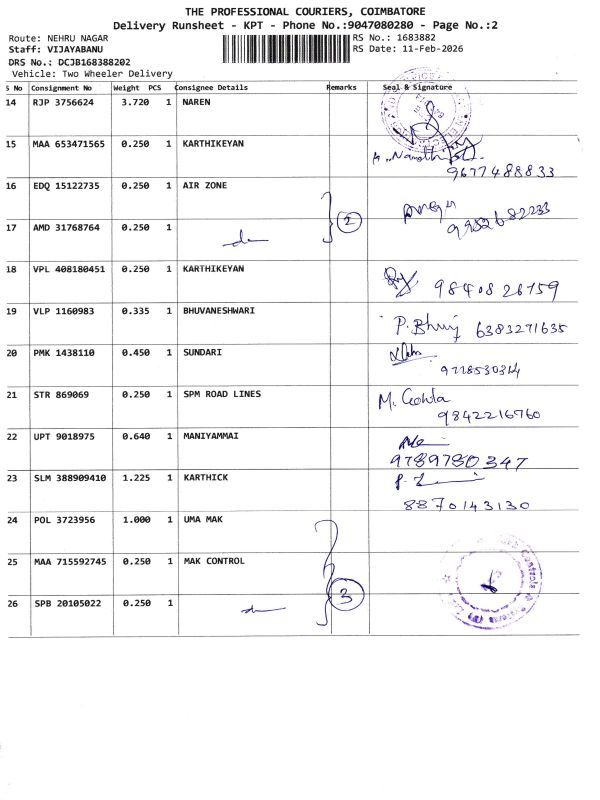 THE PROFESSIONAL COURIERS, COIMBATORE
Delivery Runsheet - KPT - Phone No.:9047080280 - Page No.:2
Route: NEHRU NAGAR RS No.: 1683882
Staff: VIJAYABANU RS Date: 11-Feb-2026
DRS No.: DCJB168388202
Vehicle: Two Wheeler Delivery
S No Consignment No Weight PCS Consignee Details Remarks Seal & Signature
14 RJP 3756624 3.720 1 NAREN
15 MAA 653471565 0.250 1 KARTHIKEYAN
9677488833
16 EDQ 15122735 0.250 1 AIR ZONE
2
17 AMD 31768764 0.250 1
9952682233
18 VPL 408180451 0.250 1 KARTHIKEYAN
9840826759
19 VLP 1160983 0.335 1 BHUVANESHWARI
P. Bhuvi 6383271635
20 PMK 1438110 0.450 1 SUNDARI
21 STR 869069 0.250 1 SPM ROAD LINES
9842216760
22 UPT 9018975 0.640 1 MANIYAMMAI
9789780347
23 SLM 388909410 1.225 1 KARTHICK
8870143130
24 POL 3723956 1.000 1 UMA MAK
25 MAA 715592745 0.250 1 MAK CONTROL
26 SPB 20105022 0.250 1
3